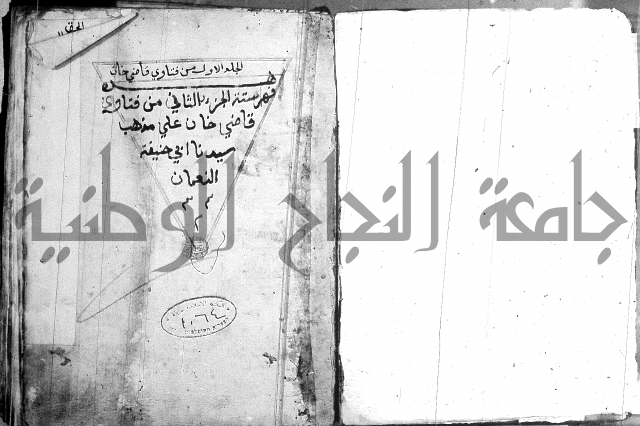 المجلد الاول من فتاوي قاضي خان
هذه
فهرستة الجزء الثاني من فتاوي
قاضي خان علي مذهب
سيدنا ابي حنيفة
النعمان
م م
م
جامعة النجاح الوطنية
١٠٦٤